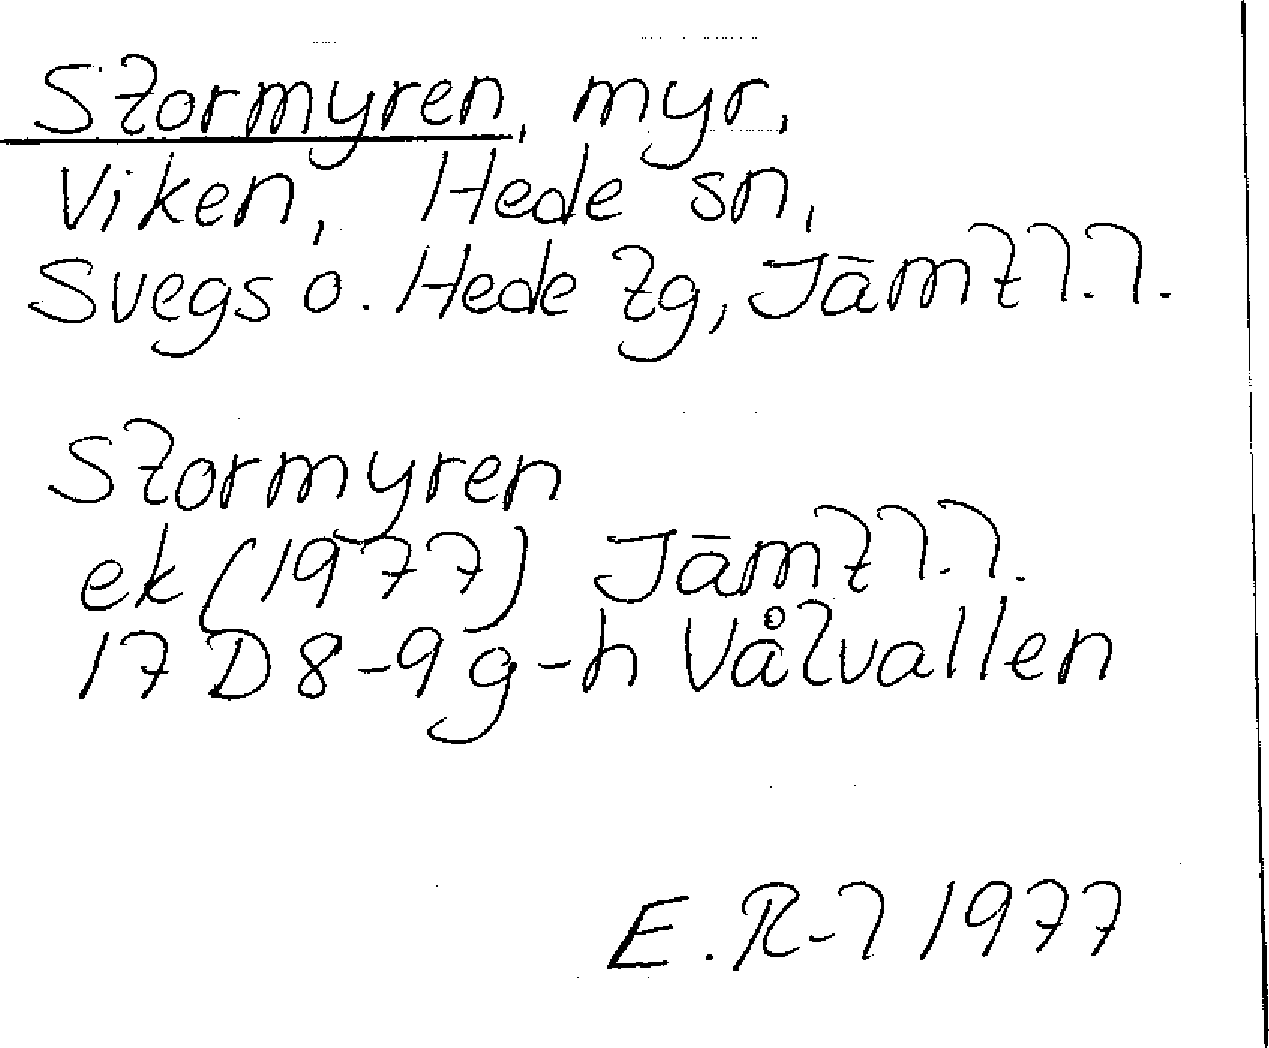 Stormyren, myr,
Viken, Hede sn,
Svegs o. Hede tg, Jämtl.l.
Stormyren
ek (1977) Jämtl.l.
17 D 8-9 g-h Vålvallen
E. R-l 1977